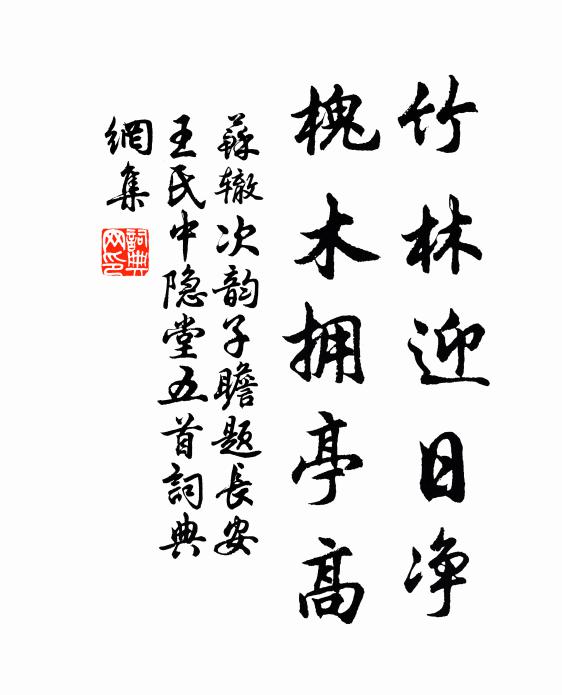 竹林迎日净
槐木拥亭高
蘇辙次韵子瞻题長安
王氏中隐堂五首詞典
網集
詞典
网印